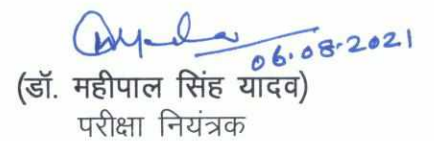 06.08.2021
(डॉ. महीपाल सिंह यादव)
परीक्षा नियंत्रक